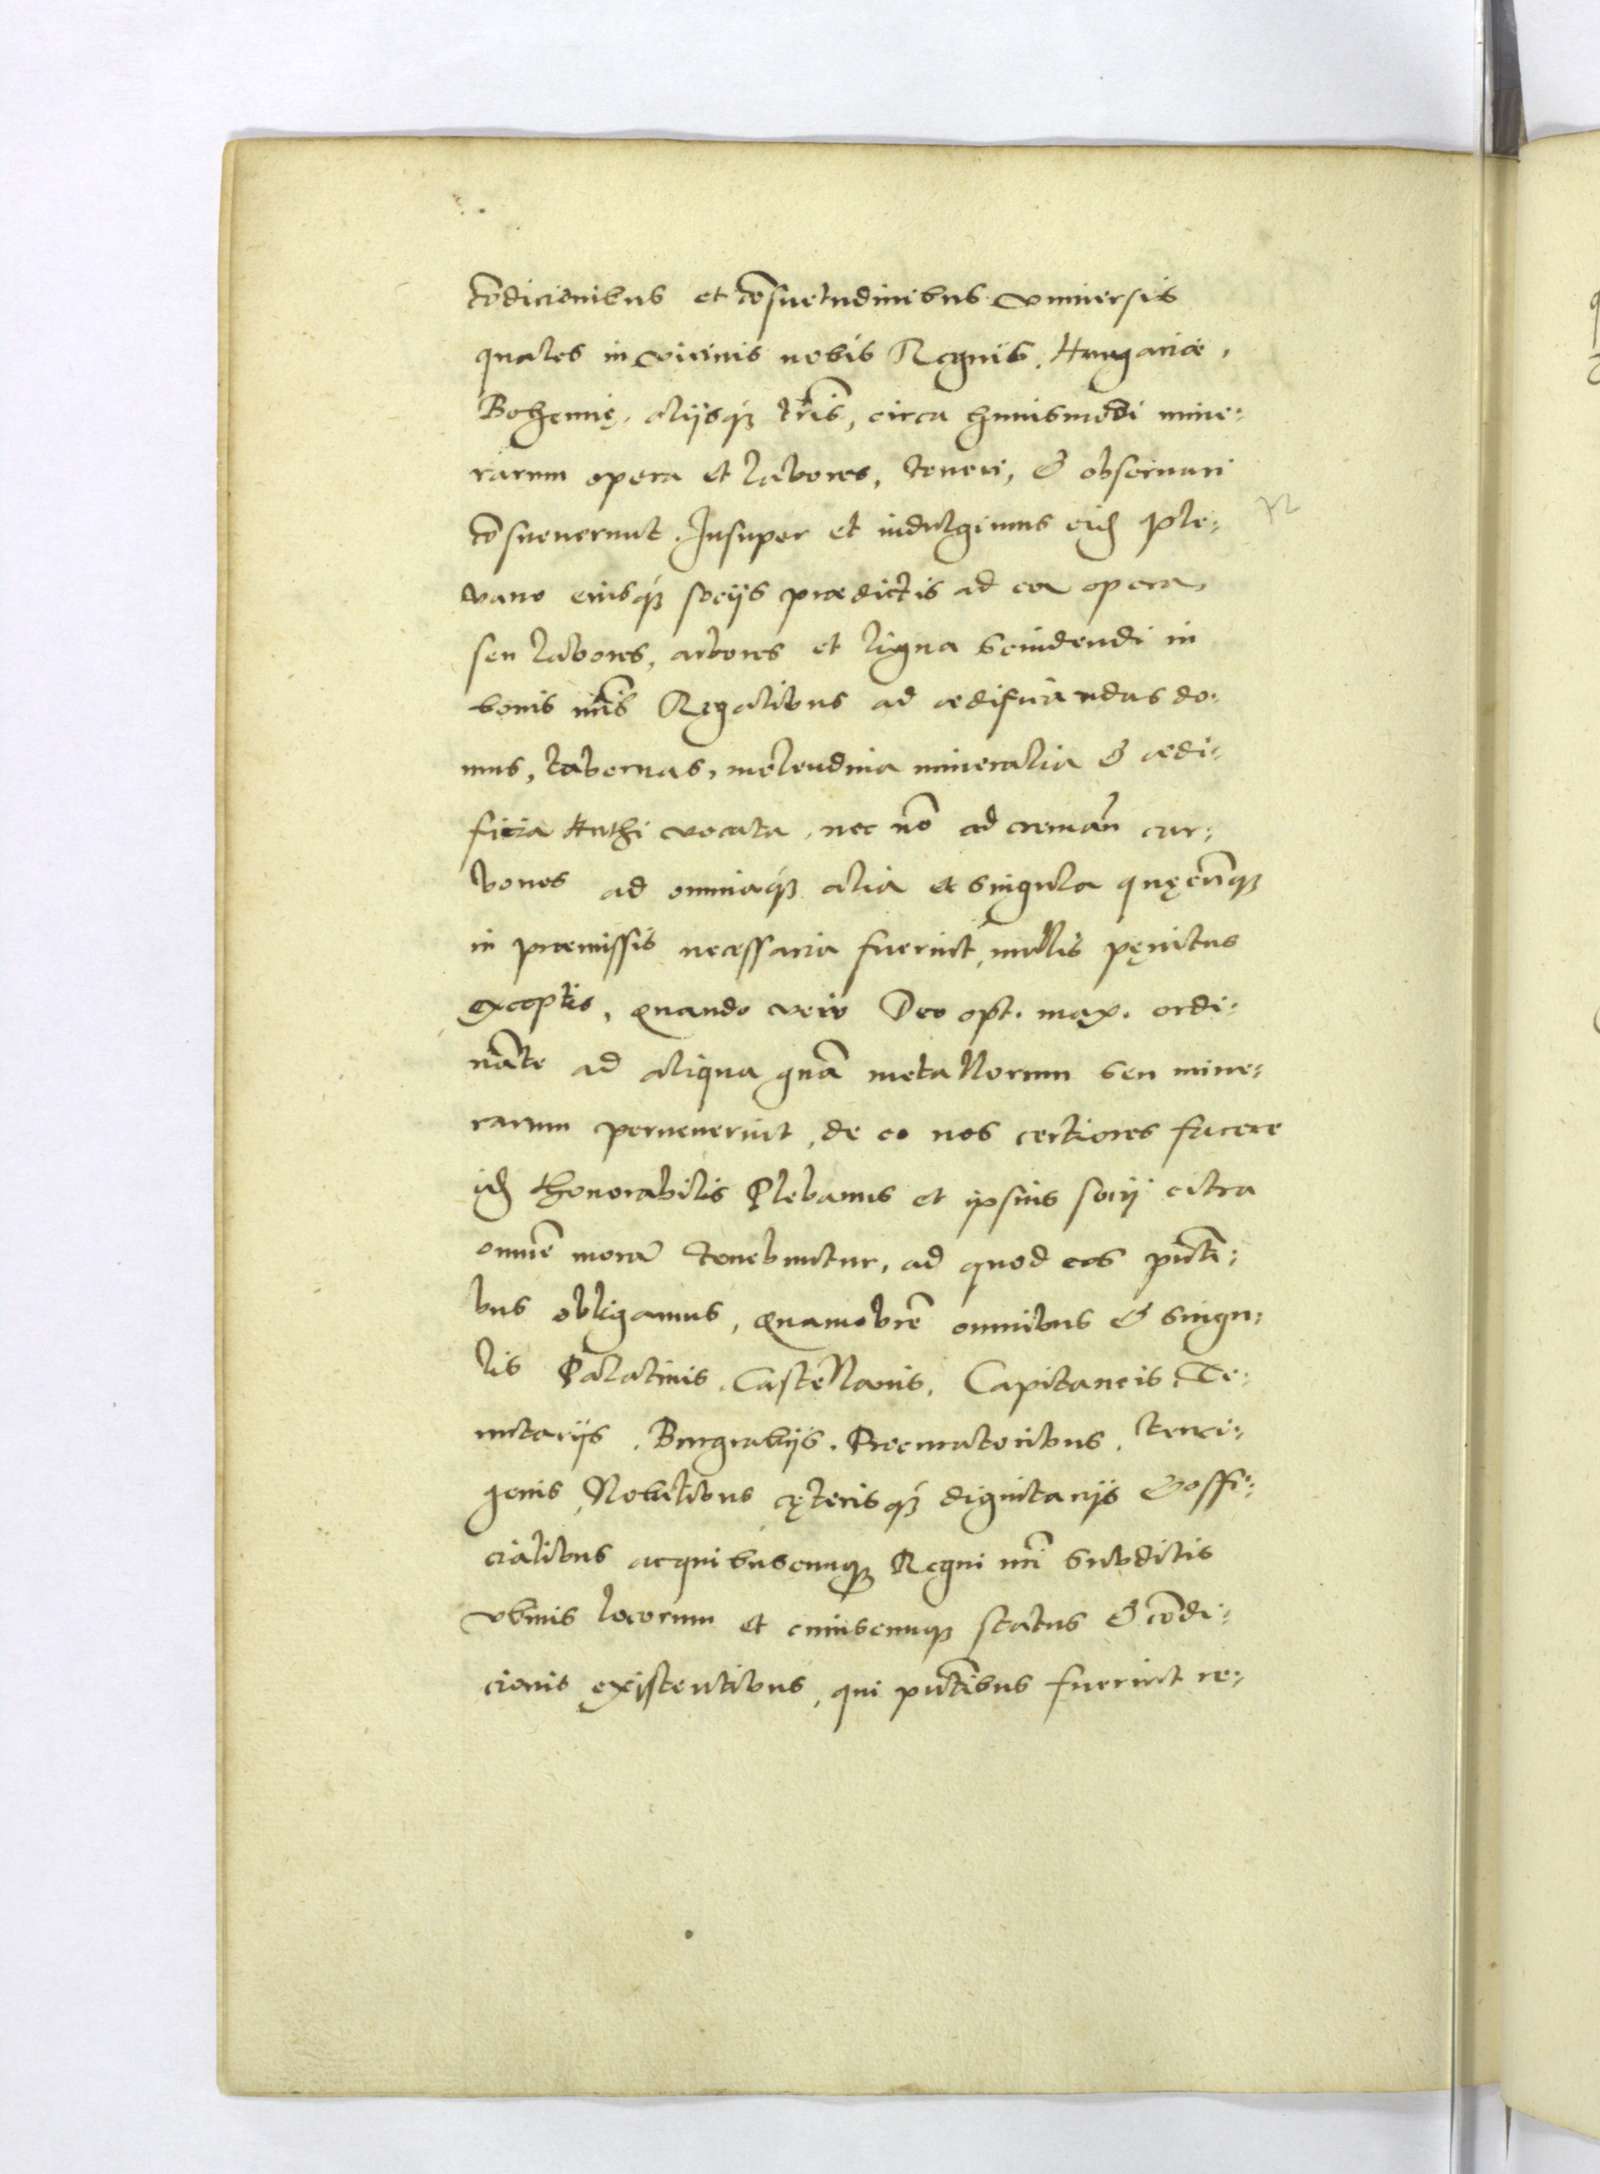 cōdicionibus et cōsuetudinibus vniuersis
quales in vicinis nobis Regnis, Hungariæ,
Bohemię, aliisq́ȝ tr̄is, circa huiusmodi mine:
rarum opera et labores, teneri, & obseruari
cōsueuerunt. Insuper et indulgimus eidȝ Ple:
vano eiusq́ȝ sociis prædictis ad ea opera
seu labores, arbores et ligna scindendi in
bonis nr̄is Regalibus ad ædificandas do:
mus, tabernas, molendina mineralia & ædi:
ficia Huthi vocata, nec nō ad cremāń car:
bones ad omniaq́ȝ alia et singula quęcūnqȝ
in præmissis necessaria fuerint, nullis pęnitus
exceptis, Quando vero Deo opt. max. ordi:
nāte ad aliqua quā metallorum seu mine:
rarum peruenerint, de eo nos certiores facere
idȝ Honorabilis Plebanus et ipsius socij citra
omnē morā tenebuntur, ad quod eos pn̄ti:
bus obligamus, Quamobrē omnibus & singu:
lis Palatinis, Castellanis, Capitaneis, Te:
nutariis, Burgrabiis, Procuratoribus, terri:
genis, Nobilibus cęterisq́ȝ dignitariis & offi:
cialibus ac quibuscunqȝ Regni nr̄i subditis
vbiuis locorum et cuiuscunqȝ status & cōdi:
cionis existentibus, qui pn̄tibus fuerint re: